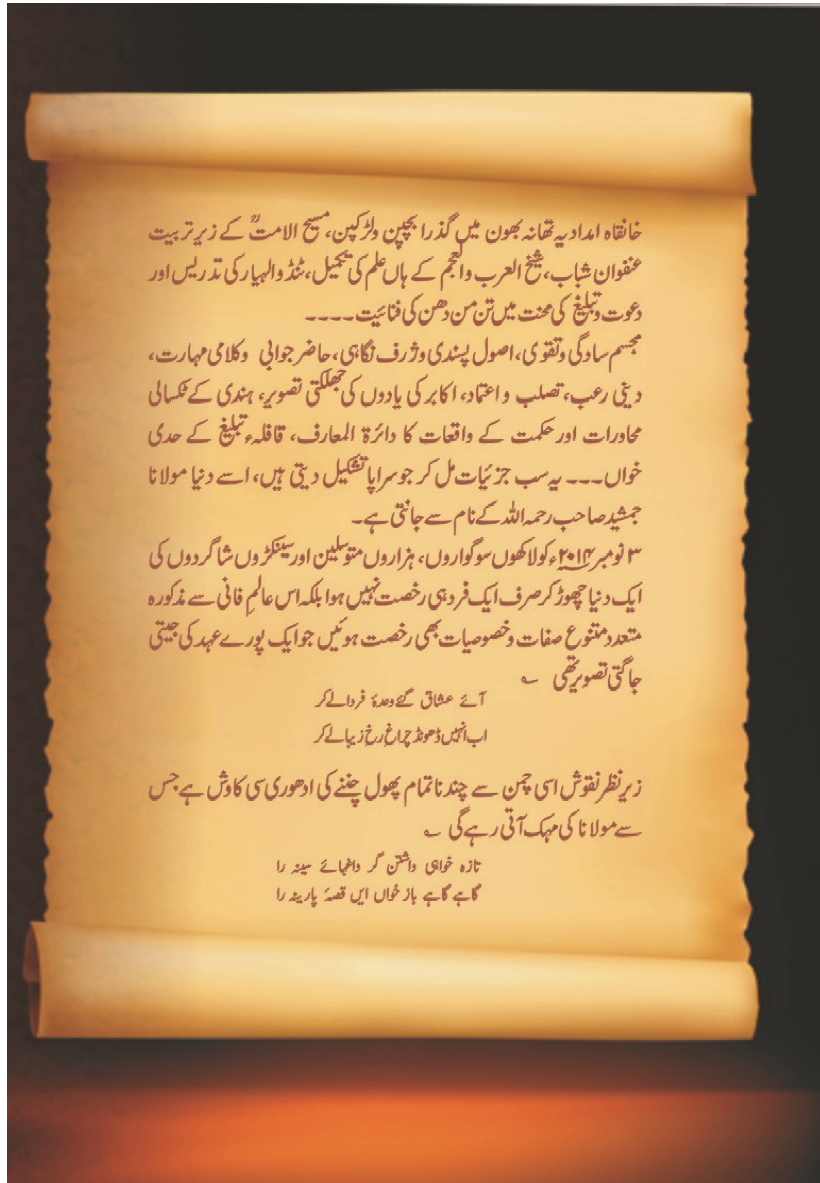 خانقاہ امدادیہ تھانہ بھون میں گذرا بچپن ولڑکپن، مسیح الامتؒ کے زیر تربیت
عنفوان شباب، شیخ العرب والعجم کے ہاں علم کی تکمیل، ٹنڈوالہیار کی تدریس اور
دعوت وتبلیغ کی محنت میں تن من دھن کی فنائیت۔۔۔۔
مجسم سادگی وتقوی، اصول پسندی وژرف نگاہی، حاضر جوابی وکلامی مہارت،
دینی رعب، تصلب و اعتماد، اکابر کی یادوں کی جھلکتی تصویر، ہندی کے ٹکسالی
محاورات اور حکمت کے واقعات کا دائرۃ المعارف، قافلہء تبلیغ کے حدی
خواں۔۔۔ یہ سب جزئیات مل کر جو سراپا تشکیل دیتی ہیں، اسے دنیا مولانا
جمشید صاحب رحمہ اللہ کے نام سے جانتی ہے۔
۳ نومبر ۲۰۱۴ء کو لاکھوں سوگواروں، ہزاروں متوسلین اور سینکڑوں شاگردوں کی
ایک دنیا چھوڑ کر صرف ایک فرد ہی رخصت نہیں ہوا بلکہ اس عالمِ فانی سے مذکورہ
متعدد متنوع صفات وخصوصیات بھی رخصت ہوئیں جو ایک پورے عہد کی جیتی
جاگتی تصویر تھی ؎
آئے عشاق گئے وعدۂ فردا لے کر
اب انہیں ڈھونڈ چراغ رخ زیبا لے کر
زیر نظر نقوش اسی چمن سے چند ناتمام پھول چننے کی ادھوری سی کاوش ہے جس
سے مولانا کی مہک آتی رہے گی ؎
تازہ خواہی داشتن گر داغہائے سینہ را
گاہے گاہے باز خواں ایں قصۂ پارینہ را